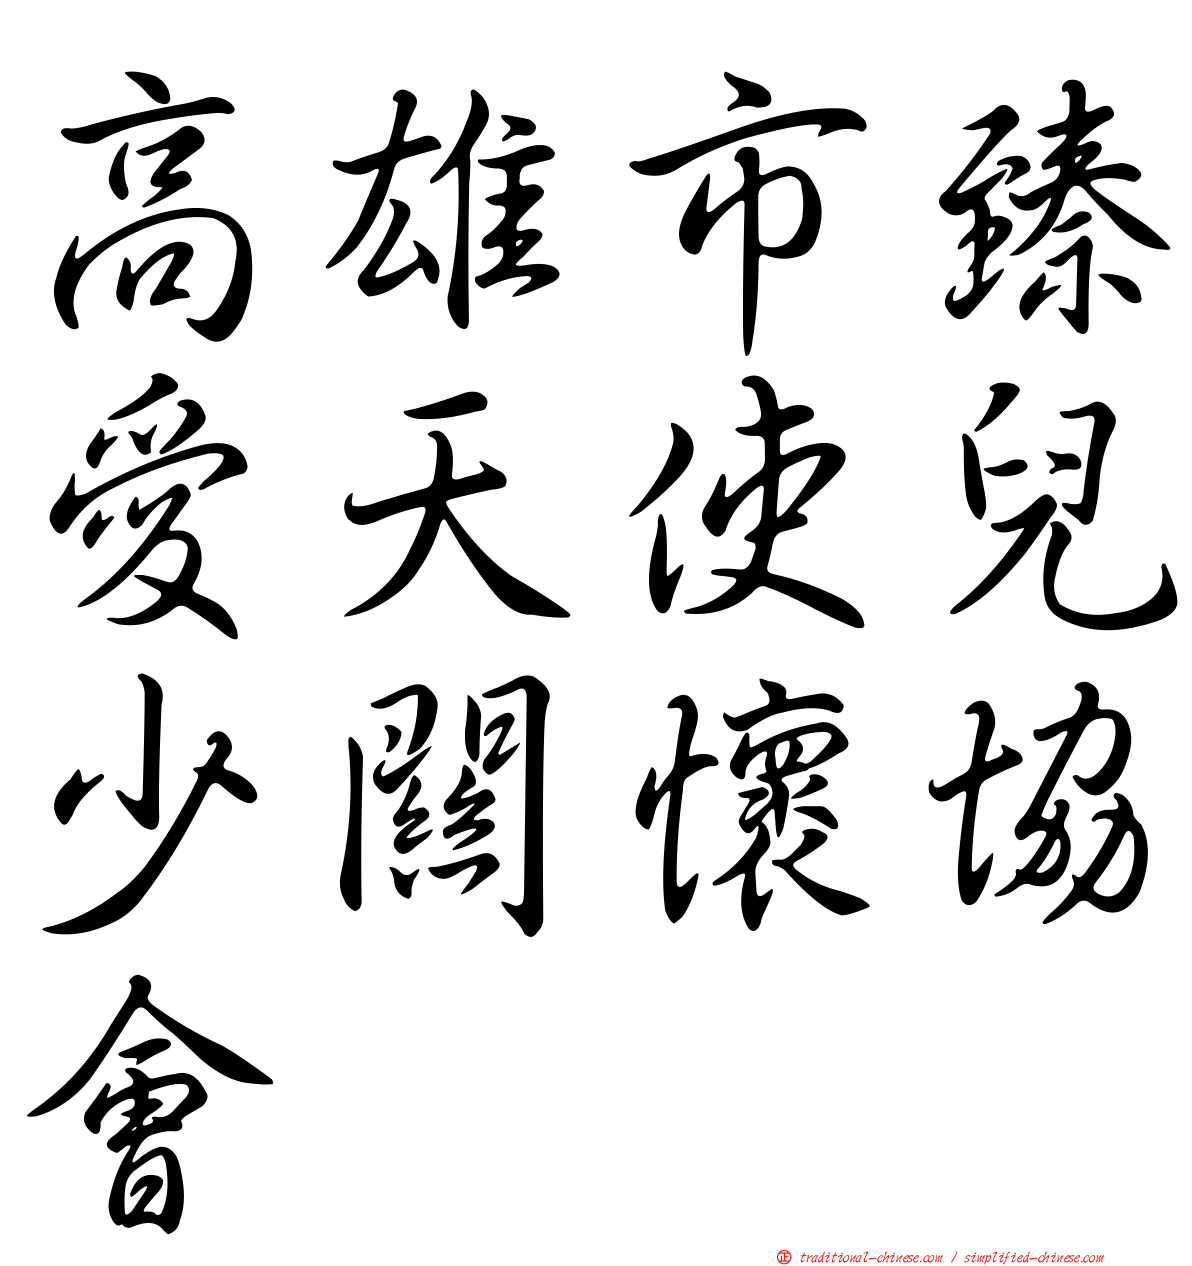 高雄市臻
愛天使兒
少關懷協
會
正 traditional-chinese.com / simplified-chinese.com